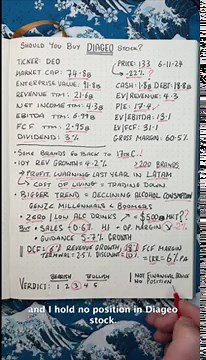 SHOULD YOU BUY DIAGEO STOCK?
TICKER: DEO
PRICE: 133 6-11-24
MARKET CAP: 74.8B
-22% ?
ENTERPRISE VALUE: 91.8B
CASH: 1.8B DEBT: 18.8B
REVENUE TTM: 21.6B
EV/REVENUE: 4.3
NET INCOME TTM: 4.3B
P/E: 17.4
EBITDA TTM: 6.79B
EV/EBITDA: 13.1
FCF TTM: 2.95B
EV/FCF: 31.1
DIVIDEND: 3%
GROSS MARGIN: 60.5%
- SOME BRANDS GO BACK TO 17TH C.
- 10Y REV GROWTH = 4.2%
200 BRANDS
→ PROFIT WARNING LAST YEAR IN LATAM
↳ COST OF LIVING = TRADING DOWN
- BIGGER TREND = DECLINING ALCOHOL CONSUMPTION
GENZ < MILLENNIALS < BOOMERS
- ZERO / LOW ALC DRINKS → $500B MKT??
BUT • SALES +0.6% H1 - OP. MARGIN
• GUIDANCE 5-7% GROWTH
DCF: 6% REVENUE GROWTH, 18% FCF MARGIN
TERMINAL: 2.5% DISCOUNT: 10% = IRR = 6% PA
BEARISH BULLISH
NOT FINANCIAL ADVICE
VERDICT: 1 2 3 4 5
NO POSITION
and I hold no position in Diageo
stock.